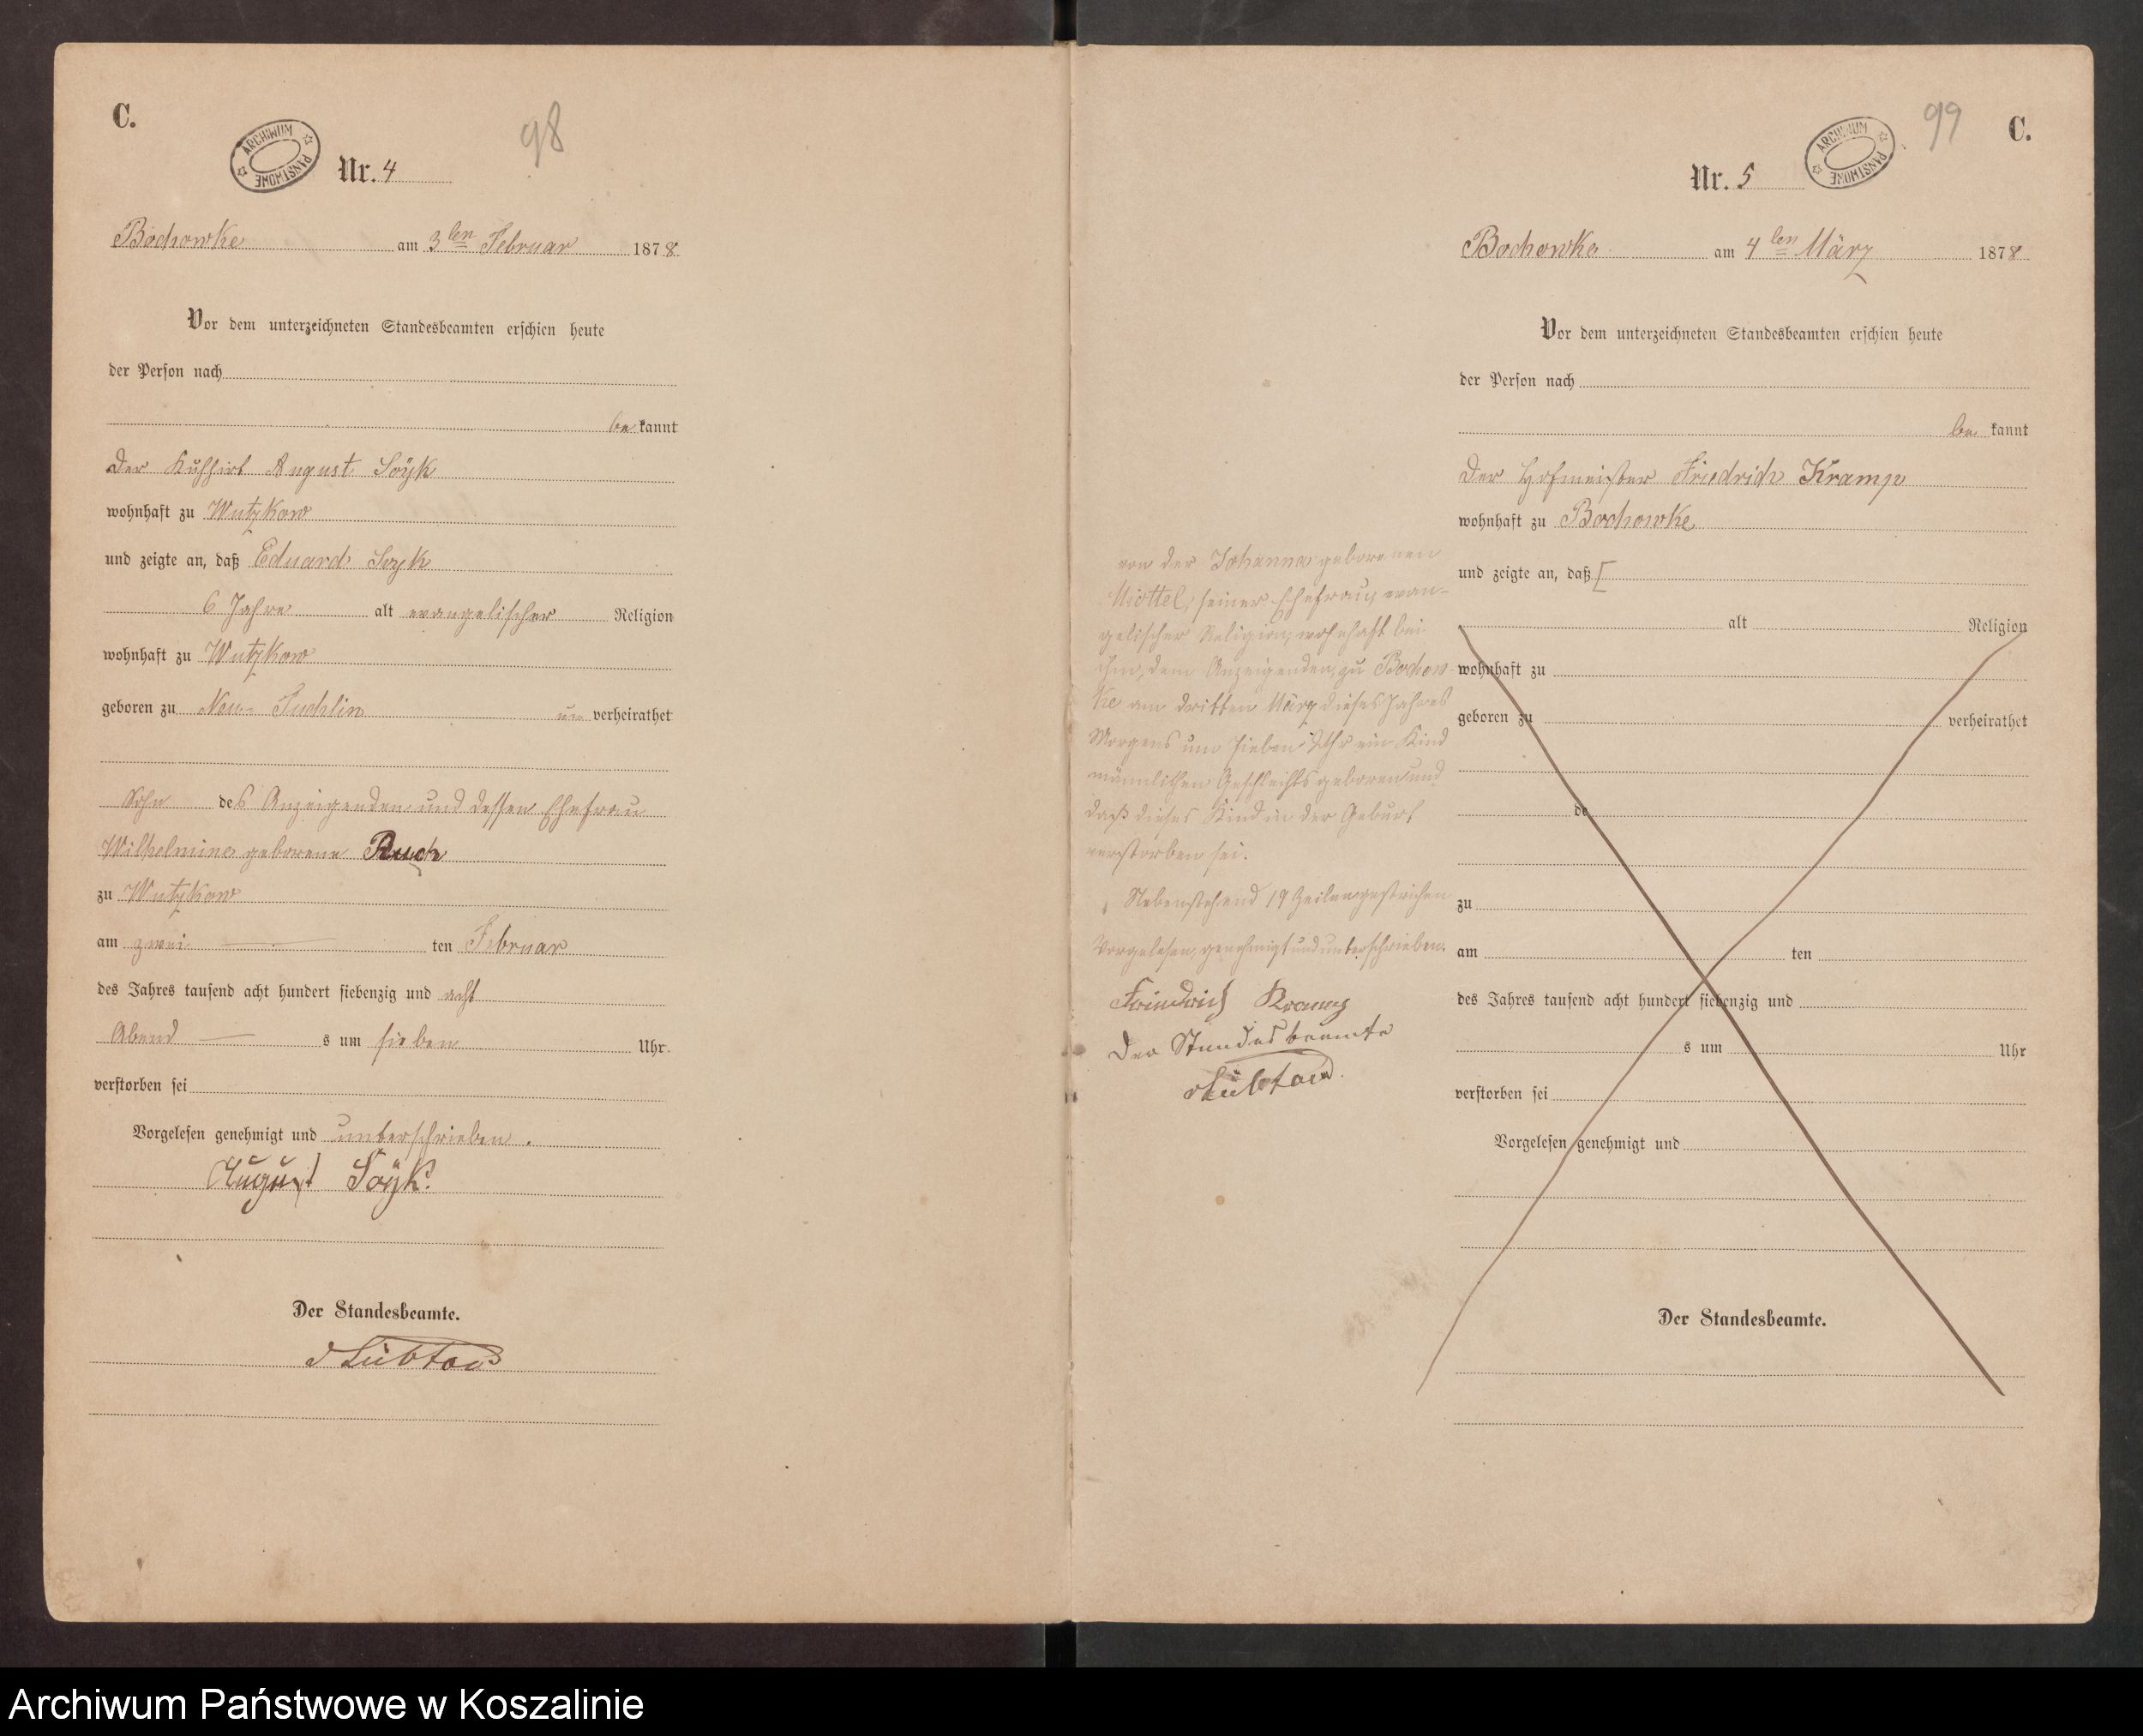 C.
98
ARCHIWUM PAŃSTWOWE
Nr. 4
Bochowke am 3ten Februar 1878.
Vor dem unterzeichneten Standesbeamten erschien heute
der Person nach
be kannt
Der Kuhhirt August Soyk
wohnhaft zu Wutzkow
und zeigte an, daß Eduard Soyk
6 Jahre alt evangelischer Religion
wohnhaft zu Wutzkow
geboren zu Neu- Suchlin un verheirathet
Sohn des Anzeigenden und dessen Ehefrau
Wilhelmine geborene Ruch
zu Wutzkow
am zwei ten Februar
des Jahres tausend acht hundert siebenzig und acht
Abend s um sieben Uhr
verstorben sei
Vorgelesen genehmigt und unterschrieben.
August Soÿk.
Der Standesbeamte.
99
C.
ARCHIWUM PAŃSTWOWE
Nr. 5
Bochowke am 4ten März 1878
Vor dem unterzeichneten Standesbeamten erschien heute
der Person nach
be kannt
Der Hofmeister Friedrich Kramp
wohnhaft zu Bochowke
und zeigte an, daß [
alt Religion
wohnhaft zu
geboren zu verheirathet
de
zu
am ten
des Jahres tausend acht hundert siebenzig und
s um Uhr
verstorben sei
Vorgelesen genehmigt und
Der Standesbeamte.
von der Johanna geborenen
seiner Ehefrau, evan-
gelischer Religion, wohnhaft bei
ihm, dem Anzeigenden, zu Bochow-
ke am dritten März dieses Jahres
Morgens um sieben Uhr ein Kind
männlichen Geschlechts geboren und
daß dieses Kind in der Geburt
verstorben sei.
Nebenstehend 19 Zeilen gestrichen
Vorgelesen, genehmigt und unterschrieben.
Friedrich Kramp
Der Standesbeamte
Archiwum Państwowe w Koszalinie